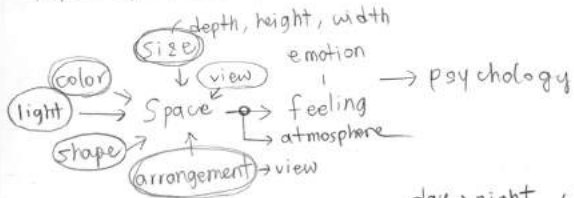 depth, height, width
size
emotion
color
view
→ psychology
light
Space
feeling
atmosphere
shape
arrangement → view
night